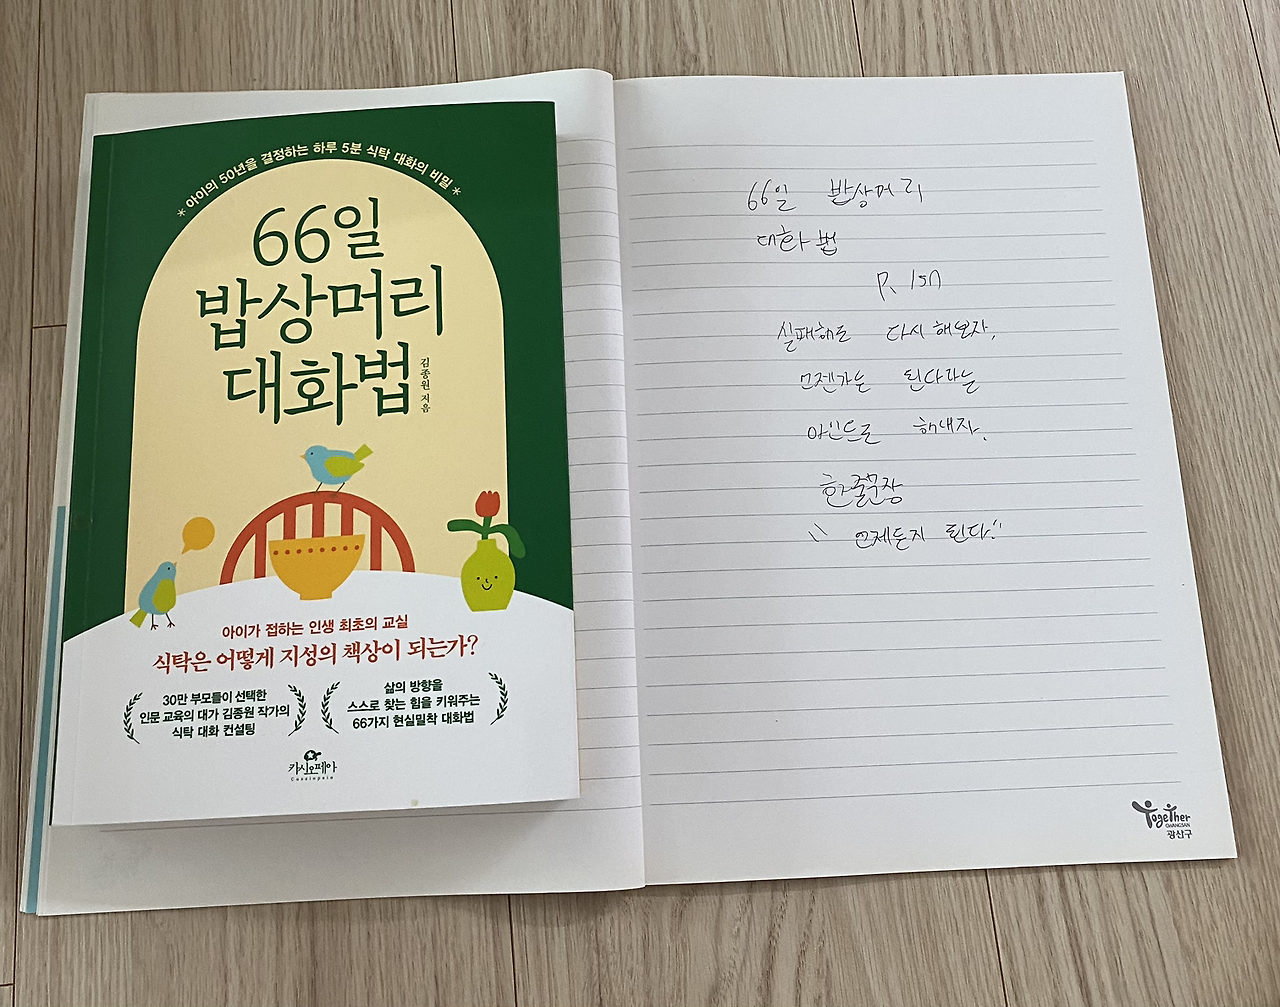 * 아이의 50년을 결정하는 하루 5분 식탁 대화의 비밀 *
66일
밥상머리
대화법
김종원 지음
아이가 접하는 인생 최초의 교실
식탁은 어떻게 지성의 책상이 되는가?
30만 부모들이 선택한
인문 교육의 대가 김종원 작가의
식탁 대화 컨설팅
삶의 방향을
스스로 찾는 힘을 키워주는
66가지 현실밀착 대화법
카시오페아
Cassiopeia
66일 밥상머리
대화법
P. 157
실패해도 다시 해보자.
언젠가는 된다라는
마인드로 해내자.
한줄문장
"언제든지 된다."
Together
GWANGSAN
광산구